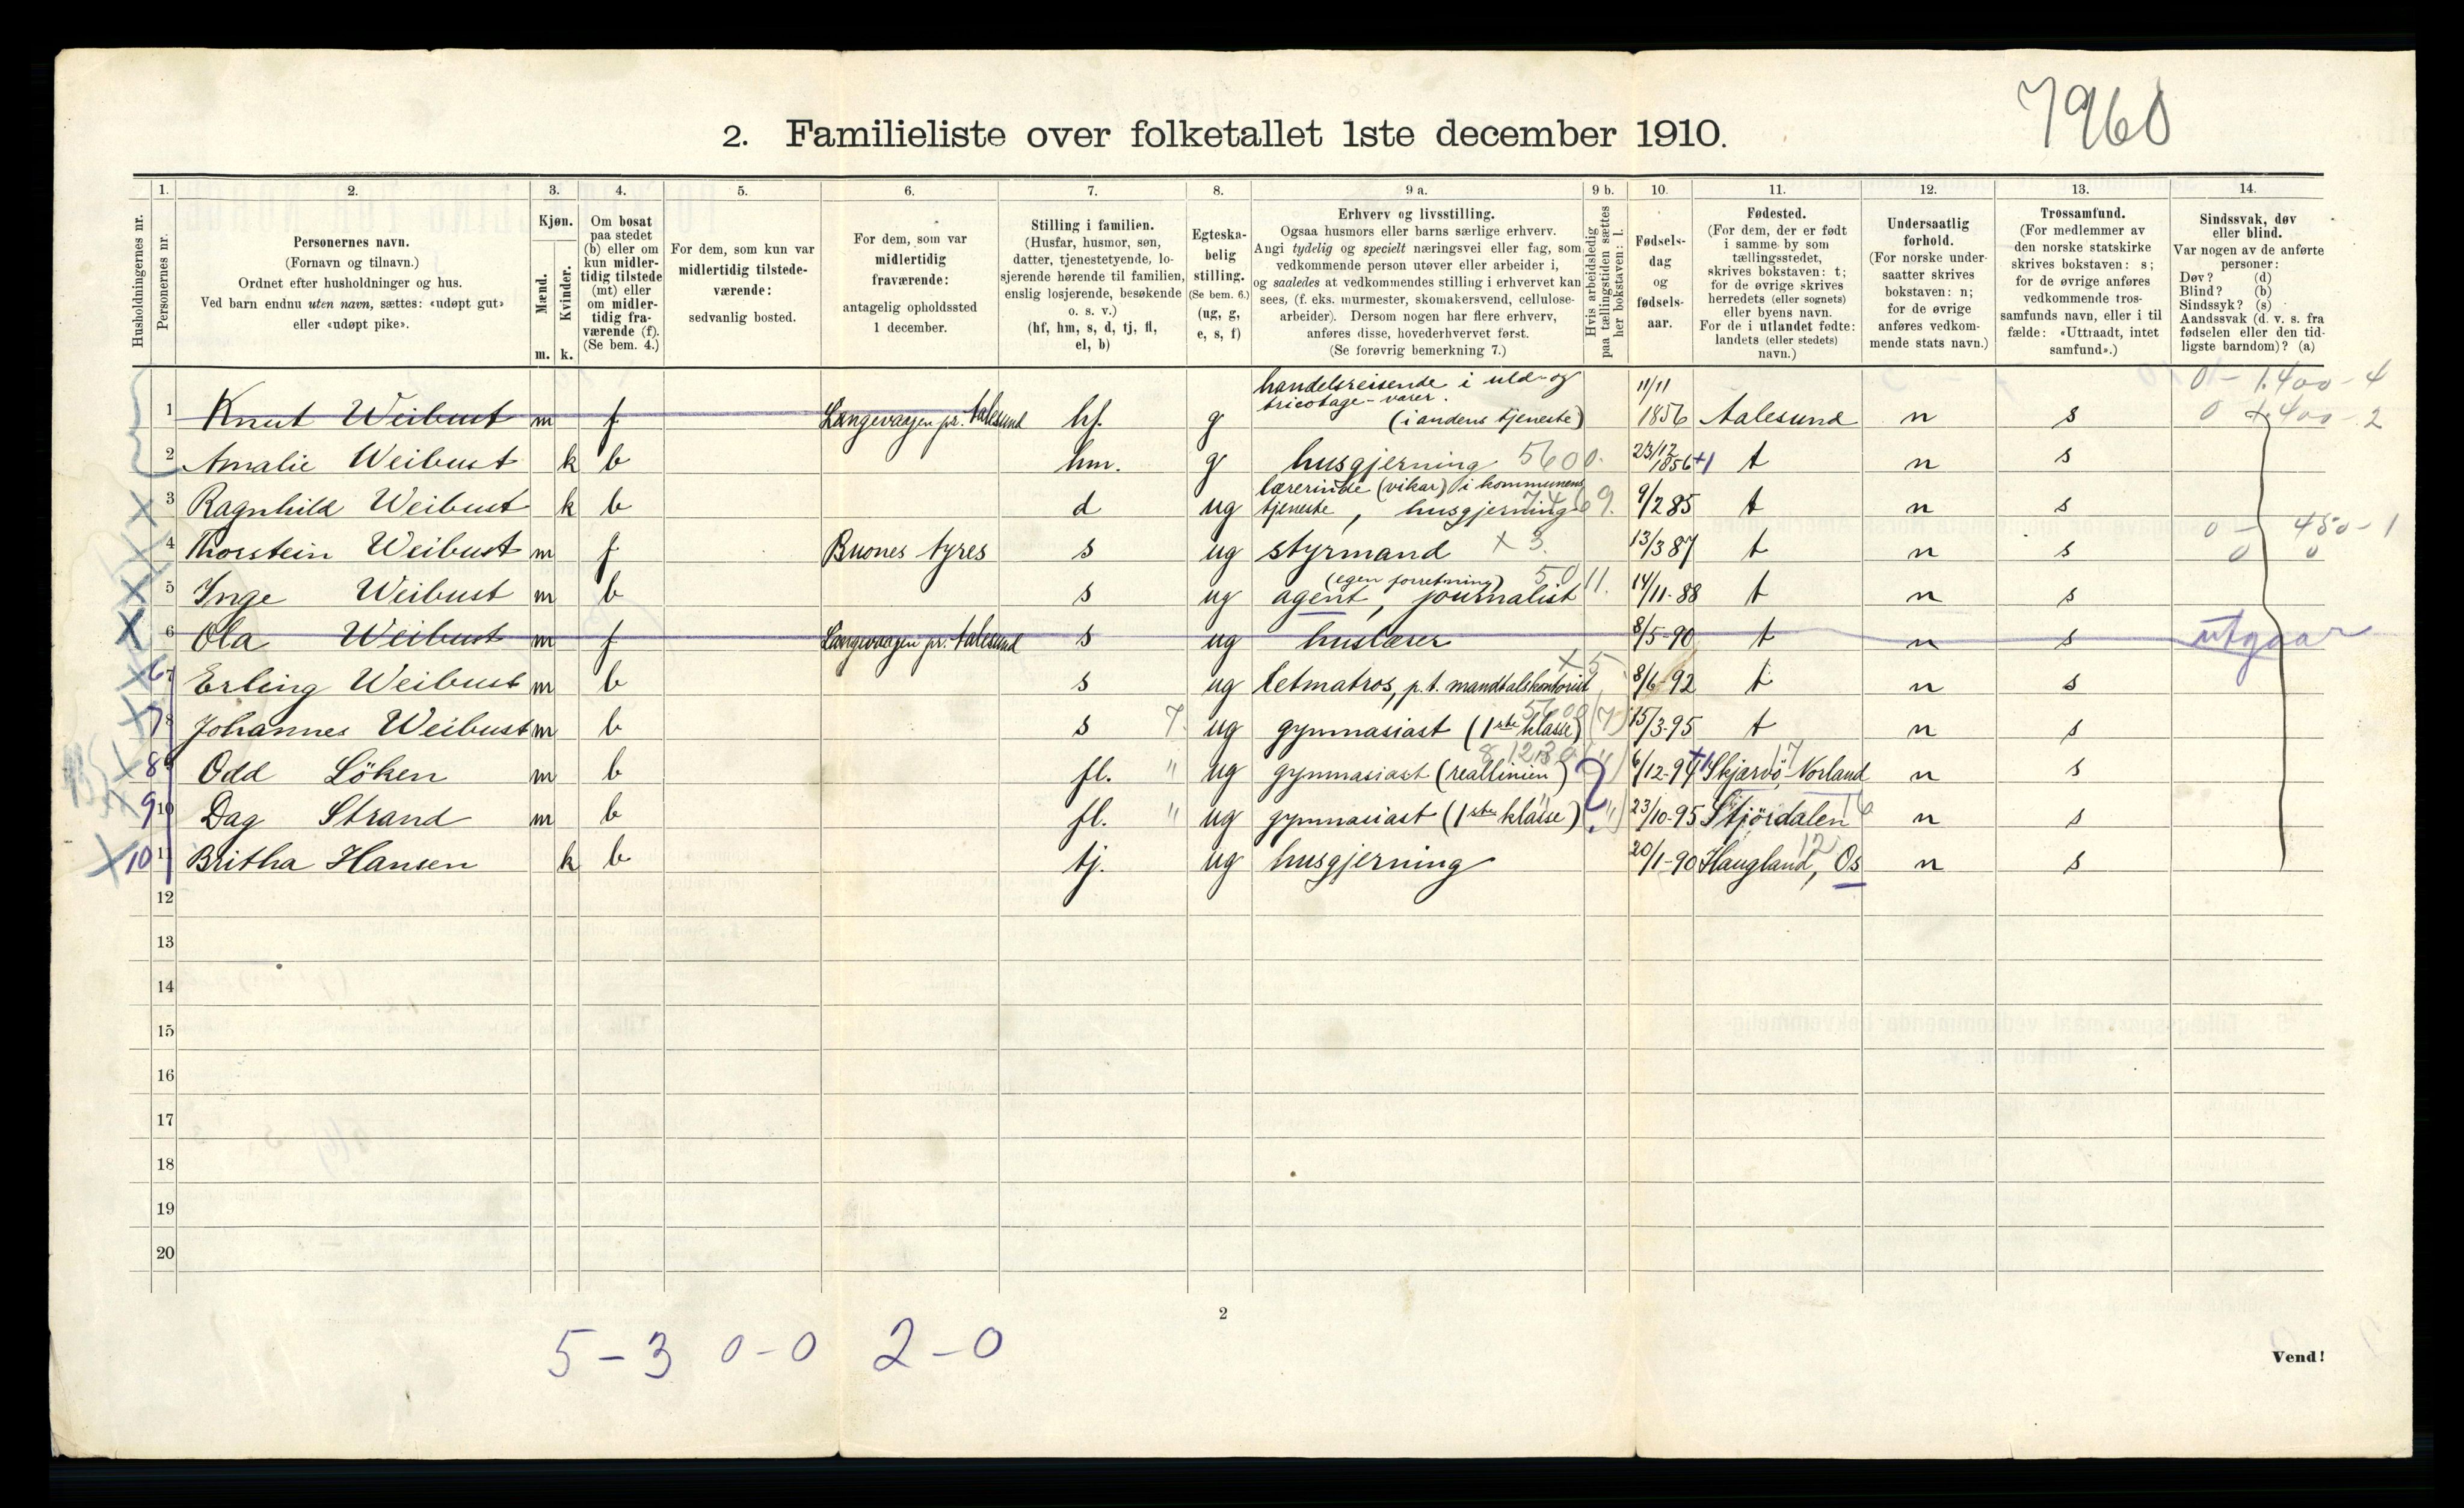 7960
2. Familieliste over folketallet 1ste december 1910.
Husholdningernes nr.
1.
Personernes nr.
2.
Personernes navn.
(Fornavn og tilnavn.)
Ordnet efter husholdninger og hus.
Ved barn endnu uten navn, sættes: «udøpt gut»
eller «udøpt pike».
3.
Kjøn.
Mænd.
Kvinder.
m. k.
4.
Om bosat
paa stedet
(b) eller om
kun midler-
tidig tilstede
(mt) eller
om midler-
tidig fra-
værende (f).
(Se bem. 4.)
5.
For dem, som kun var
midlertidig tilstede-
værende:
sedvanlig bosted.
6.
For dem, som var
midlertidig
fraværende:
antagelig opholdssted
1 december.
7.
Stilling i familien.
(Husfar, husmor, søn,
datter, tjenestetyende, lo-
sjerende hørende til familien,
enslig losjerende, besøkende
o. s. v.)
(hf, hm, s, d, tj, fl,
el, b)
8.
Egteska-
belig
stilling.
(Se bem. 6.)
(ug, g,
e, s, f)
9 a.
Erhverv og livsstilling.
Ogsaa husmors eller barns særlige erhverv.
Angi tydelig og specielt næringsvei eller fag, som
vedkommende person utøver eller arbeider i,
og saaledes at vedkommendes stilling i erhvervet kan
sees, (f. eks. murmester, skomakersvend, cellulose-
arbeider). Dersom nogen har flere erhverv,
anføres disse, hovederhvervet først.
(Se forøvrig bemerkning 7.)
9 b.
Hvis arbeidsledig
paa tællingstiden sættes
her bokstaven: l.
10.
Fødsels-
dag
og
fødsels-
aar.
11.
Fødested.
(For dem, der er født
i samme by som
tællingsstedet,
skrives bokstaven: t;
for de øvrige skrives
herredets (eller sognets)
eller byens navn.
For de i utlandet fødte:
landets (eller stedets)
navn.)
12.
Undersaatlig
forhold.
(For norske under-
saatter skrives
bokstaven: n;
for de øvrige
anføres vedkom-
mende stats navn.)
13.
Trossamfund.
(For medlemmer av
den norske statskirke
skrives bokstaven: s;
for de øvrige anføres
vedkommende tros-
samfunds navn, eller i til
fælde: «Uttraadt, intet
samfund».)
14.
Sindssvak, døv
eller blind.
Var nogen av de anførte
personer:
Døv? (d)
Blind? (b)
Sindssyk? (s)
Aandssvak (d. v. s. fra
fødselen eller den tid-
ligste barndom)? (a)
handelsreisende i uld- og 11/11 0 - 1.400 - 4
tricotage-varer.
1 Knut Weibust m f Langevaagen pr. Aalesund hf. g (i andens tjeneste) 1856 Aalesund n s 0 1.400 - 2
2 Amalie Weibust k b hm. g husgjerning 5600. 23/12 1856 +1 t n s
lærerinde (vikar) i kommunens
3 Ragnhild Weibust k b d ug tjeneste, husgjerning 9. 9/2 85 t n s
0 - 450 - 1
4 Thorstein Weibust m f Buones Ayres s ug styrmand x 3. 13/3 87 t n s 0 0
(egen forretning) 50 11.
5 Inge Weibust m b s ug agent, journalist 14/11-88 t n s
6 Ola Weibust m f Langevaagen pr. Aalesund s ug huslærer 8/5-90 t n s utgaar
6 7 Erling Weibust m b s ug Letmatros, p.t. mandtalskontorist x 5 8/6-92 t n s
7 8 Johannes Weibust m b s 7. ug gymnasiast (1ste klasse) (7) 15/3-95 t n s
8 9 Odd Löken m b fl. " ug gymnasiast (reallinien) 6/12-94 +1 Skjærvö, Norland 17 n s
9 10 Dag Strand m b fl. " ug gymnasiast (1ste klasse) 23/10-95 Stjördalen 16 n s
10 11 Britha Hansen k b tj. ug husgjerning 20/1-90 Haugland, Os 12 n s
12
13
14
15
16
17
18
19
20
2
5 - 3 0 - 0 2 - 0
Vend!